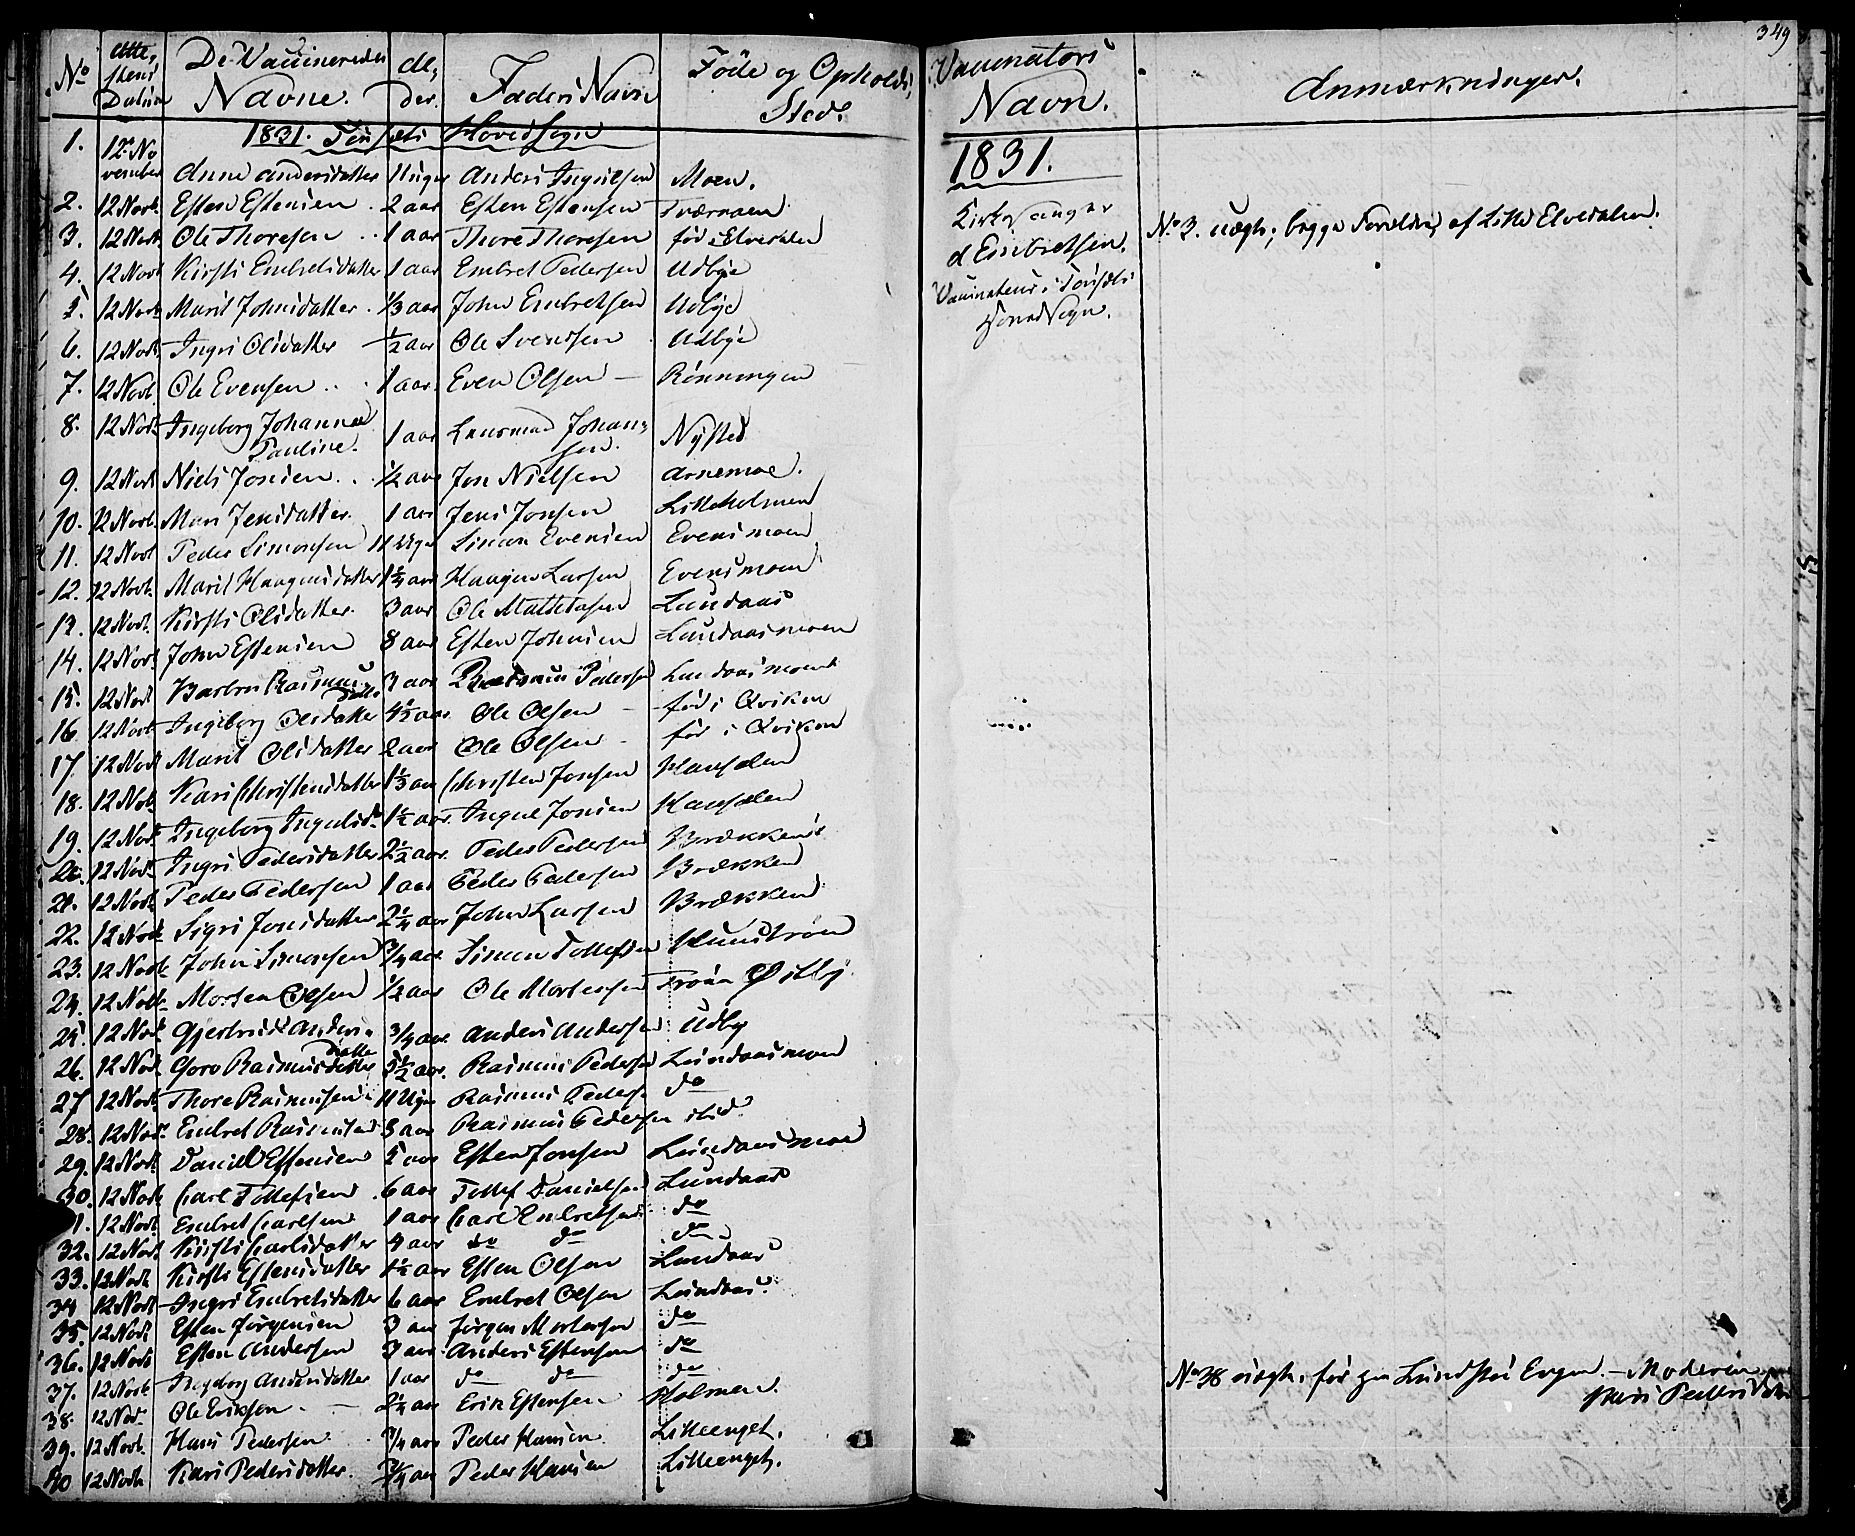 349
No Attestens Datum De Vaccineredes Navne. Alder. Faders Navn Føde og Opholds Sted. Vaccinators Navn. Anmærkninger.
1831. Tønsets Hovedsogn
1831.
1. 12te November Anne Andersdatter 11 Uger Anders Ingvilsen Moen.
2. 12 Novb. Esten Estensen 2 aar Esten Estensen Tværmoen
3. 12 Novb. Ole Thoresen 1 aar Thore Thoresen fød i Elverdalen
4. 12 Novb Kirsti Embretsdatter 1 aar Embret Pedersen Udbye
5. 12 Novb Marit Johnsdatter 1/3 aar John Embretsen Udbye
6. 12 Novb. Ingri Olsdatter 1/2 aar Ole Svendsen Udbye
7. 12 Novb. Ole Evensen 1 aar. Even Olsen Rönningen
8. 12 Novb Ingeborg Johanne Pauline. 1 aar Lensmand Johansen. Nysted
9. 12 Novb Niels Jonsen 1/2 aar Jon Nielsen Arnemoe.
10. 12 Novb. Mari Jensdatter 1 aar Jens Jonsen Lilleholmen
11. 12 Novb Peder Simonsen 11 Uger Simon Evensen Evensmoen
12. 12 Novb. Marit Haagensdatter 1 1/4 aar Haagen Larsen Evensmoen
13. 12 Novb. Kirsti Olsdatter 3 aar Ole Lundaas
14. 12 Novb John Estensen 8 aar Esten Johnsen Lundaasmoen
15. 12 Novb Barbro Rasmusdatter 3 aar Rasmus Pedersen Lundaasmoen
16. 12 Novb Ingeborg Olsdatter 4 1/2 aar Ole Olsen fød i Qvikne
17. 12 Novb Marit Olsdatter 2 aar Ole Olsen fød i Qvikne
18. 12 Novb Kari Christensdatter 1 1/3 aar Christen Jonsen
19. 12 Novb Ingeborg 1 1/2 aar
20. 12 Novb. Ingri Pedersdatter 2 1/2 aar Peder Pedersen Brækken
21. 12 Novb Peder Pedersen 1 aar Peder Pedersen Brækken
22. 12 Novb. Sigri Jonsdatter 2 1/4 aar John Larsen Brækken
23. 12 Novb. John Simonsen 3/4 aar Simen Tollefsen
24. 12 Novb. Morten Olsen 1/2 aar Ole Mortensen
25 12 Novb Gjertrud Andersdatter 3/4 aar. Anders Andersen Udby
26. 12 Novb Goro Rasmusdatter 5 1/2 aar. Rasmus Pedersen Lundaasmoen
27 12 Novb Thore Rasmusen 11 Uger Rasmus Peders. do
28. 12 Novb. Embret Rasmusen 8 aar Rasmus Pedersen ibid.
29. 12 Novb Daniel Estensen 5 aar Esten Jonsen Lundaasmoen
30. 12 Novb Carl Tollefsen 6 aar Tollef Danielsen Lundaas
31. 12 Novb Embret Carlsen 1 aar Carl Embretsen do
32. 12 Novb Kirsti Carlsdatter 4 aar do do do
33. 12 Novb Kirsti Estensdatter 1 1/2 aar Esten Olsen Lundaas
34 12 Novb Ingri Embretsdatter 6 aar Embret Olsen Lundaas.
35. 12 Novb Esten Jörgensen 3 aar Jörgen Mortensen do
36. 12 Novb Esten Andersen 3 aar Anders Estensen do
37. 12 Novb Ingeborg Andersdatter 1 aar do do do
38. 12 Nov. Ole Eriksen 2 1/4 aar Erik Estensen Holmen.
39. 12 Novb. Hans Pedersen 3/4 aar Peder Hansen Lilleenget.
40 12 Novb. Kari Pedersdatter. 3/4 aar Peder Hansen Lilleenget.
Kirkesanger
Embretsen.
Vaccinateur i Tönsets
Hovedsogn.
No 3. uægte; begge Forældre af Lille Elvedalen.
No 38 uægte, fød paa Evgn. - Moderen
Kari Pedersdatter